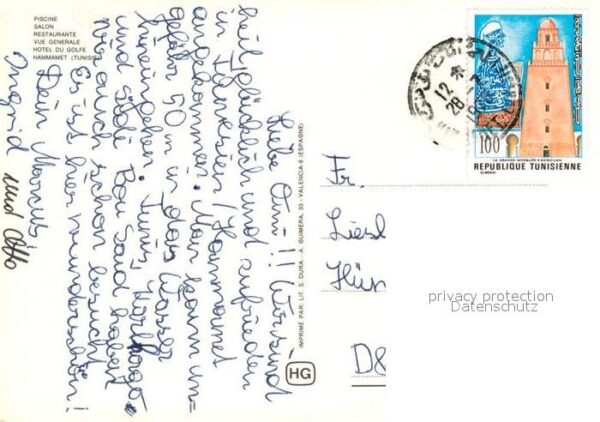 PISCINE
SALON
RESTAURANTE
VUE GENERALE
HOTEL DU GOLFE
HAMMAMET (TUNISIE)
Liebe Omi! Wir sind
heil, glücklich und zufrieden
in Tunesien / Hammamet
angekommen. Man kann un-
gefähr 50 m in das Wasser
hineingehen. Tunis, Karthago
und Sidi Bou Said haben
wir auch schon besucht.
Es ist hier wunderschön!
Dein Marcus,
Ingrid und Otto
IMPRIMÉ PAR. LIT. S. DURA - A. GUIMERA, 33 - VALENCIA-8 (ESPAGNE)
HG
12
28
100
LA GRANDE MOSQUÉE KAIROUAN
REPUBLIQUE TUNISIENNE
Fr.
Liesl
Hün
D8
privacy protection
Datenschutz